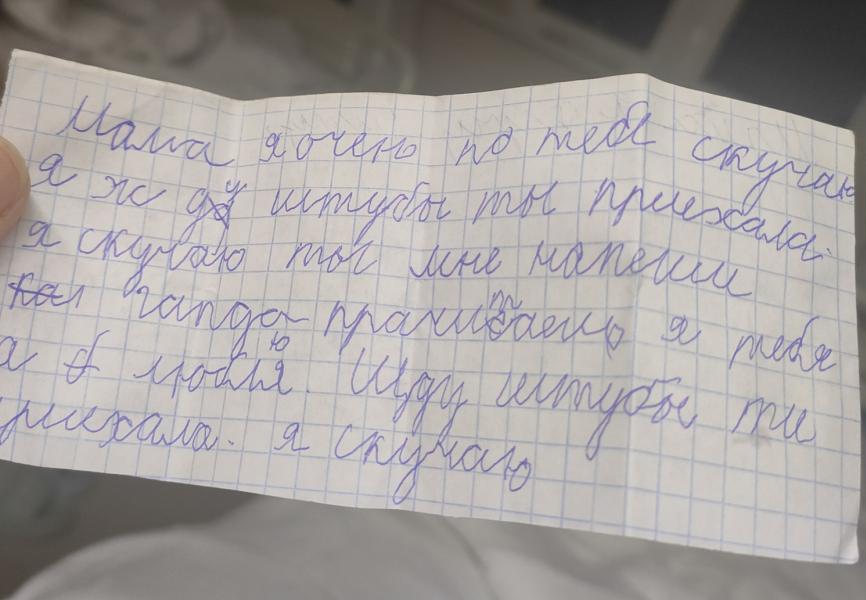 Мама я очень по тебе скучаю
я ж ду штубы ты приехала.
я скучаю ты мне напеши
гапда прачитаешь я тебя
люблю. Жду штубы ти
приехала. я скучаю